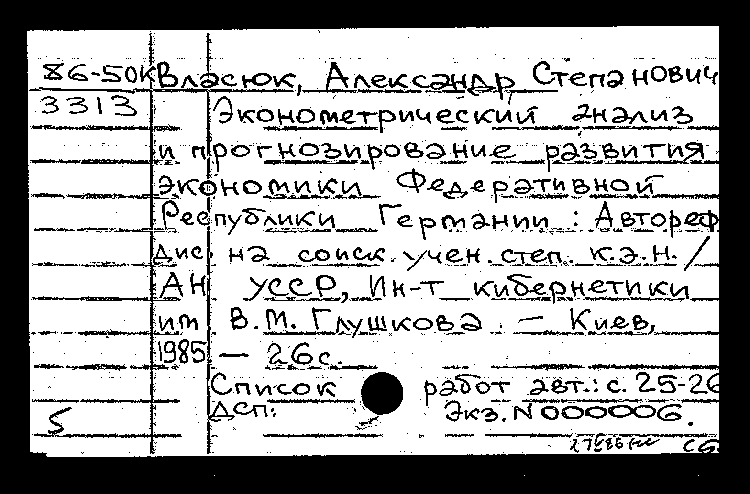 86-50К Власюк, Александр Степанович
3313 Эконометрический анализ
и прогнозирование развития
экономики Федеративной
Республики Германии : Автореф
дис. на соиск. учен. степ. к.э.н. /
АН УССР, Ин-т кибернетики
им В.М. Глушкова. — Киев,
1985 — 26с.
Список работ авт.: с. 25-26
ДСП: Экз. N000006.
5